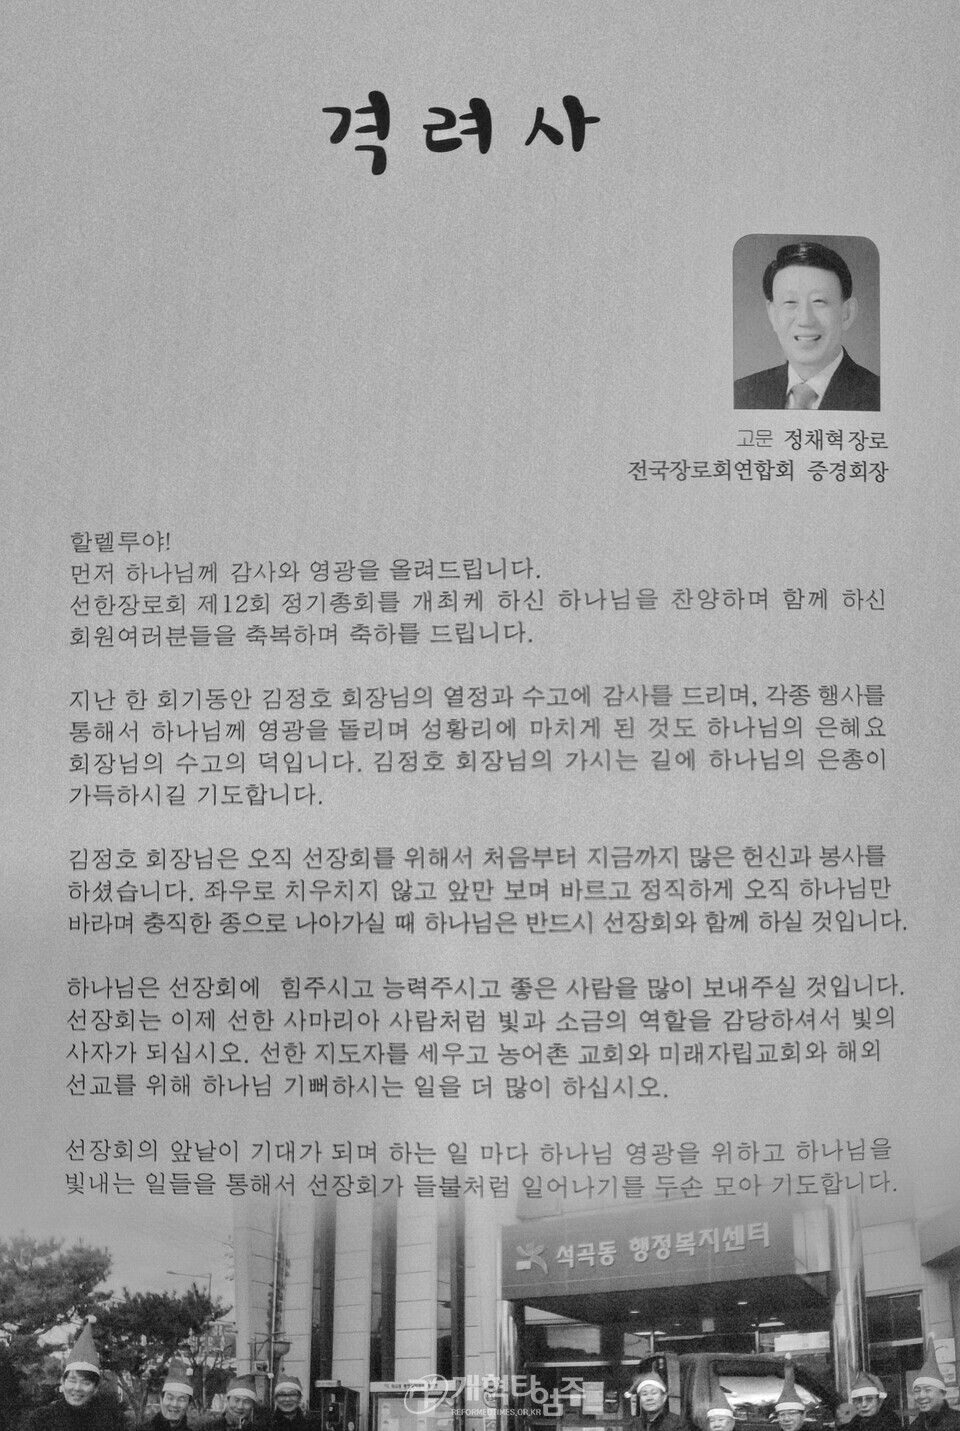 격려사
고문 정채혁 장로
전국장로회연합회 증경회장
할렐루야!
먼저 하나님께 감사와 영광을 올려드립니다.
선한장로회 제12회 정기총회를 개최케 하신 하나님을 찬양하며 함께 하신
회원여러분들을 축복하며 축하를 드립니다.
지난 한 회기동안 김정호 회장님의 열정과 수고에 감사를 드리며, 각종 행사를
통해서 하나님께 영광을 돌리며 성황리에 마치게 된 것도 하나님의 은혜요
회장님의 수고의 덕입니다. 김정호 회장님의 가시는 길에 하나님의 은총이
가득하시길 기도합니다.
김정호 회장님은 오직 선장회를 위해서 처음부터 지금까지 많은 헌신과 봉사를
하셨습니다. 좌우로 치우치지 않고 앞만 보며 바르고 정직하게 오직 하나님만
바라며 충직한 종으로 나아가실 때 하나님은 반드시 선장회와 함께 하실 것입니다.
하나님은 선장회에 힘주시고 능력주시고 좋은 사람을 많이 보내주실 것입니다.
선장회는 이제 선한 사마리아 사람처럼 빛과 소금의 역할을 감당하셔서 빛의
사자가 되십시오. 선한 지도자를 세우고 농어촌 교회와 미래자립교회와 해외
선교를 위해 하나님 기뻐하시는 일을 더 많이 하십시오.
선장회의 앞날이 기대가 되며 하는 일 마다 하나님 영광을 위하고 하나님을
빛내는 일들을 통해서 선장회가 들불처럼 일어나기를 두손 모아 기도합니다.
석곡동 행정복지센터
개혁타임즈
REFORMEDTIMES.OR.KR